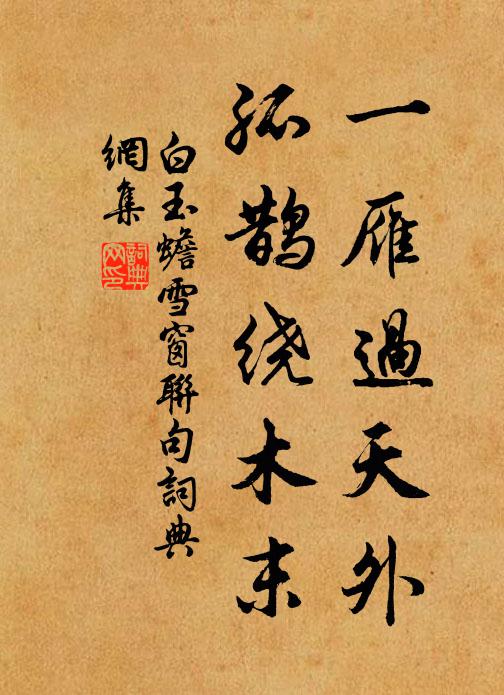 一雁過天外
孤鹊绕木末
白玉蟾雪窗聯句詞典
網集
詞典
网印